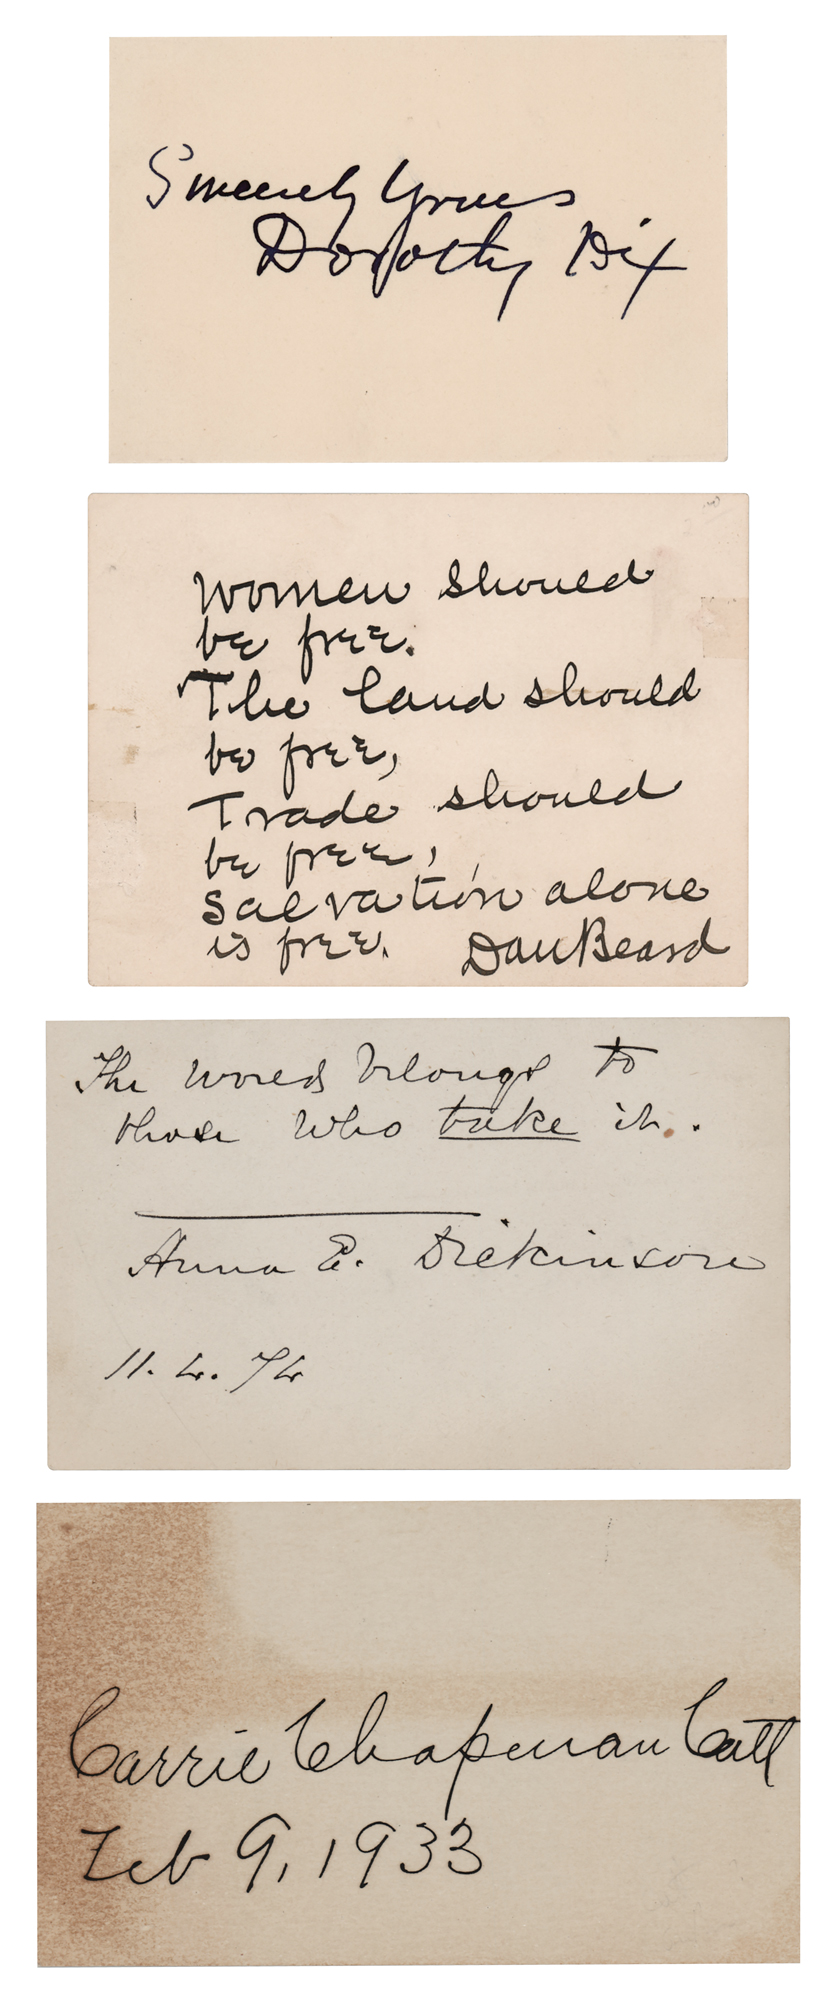 Sincerely Yours
Dorothy Dix
Women should
be free.
The land should
be free,
Trade should
be free,
Salvation alone
is free. Dan Beard
The world belongs to
those who take it.
Anna E. Dickinson
11. 4. 74
Carrie Chapman Catt
Feb 9, 1933